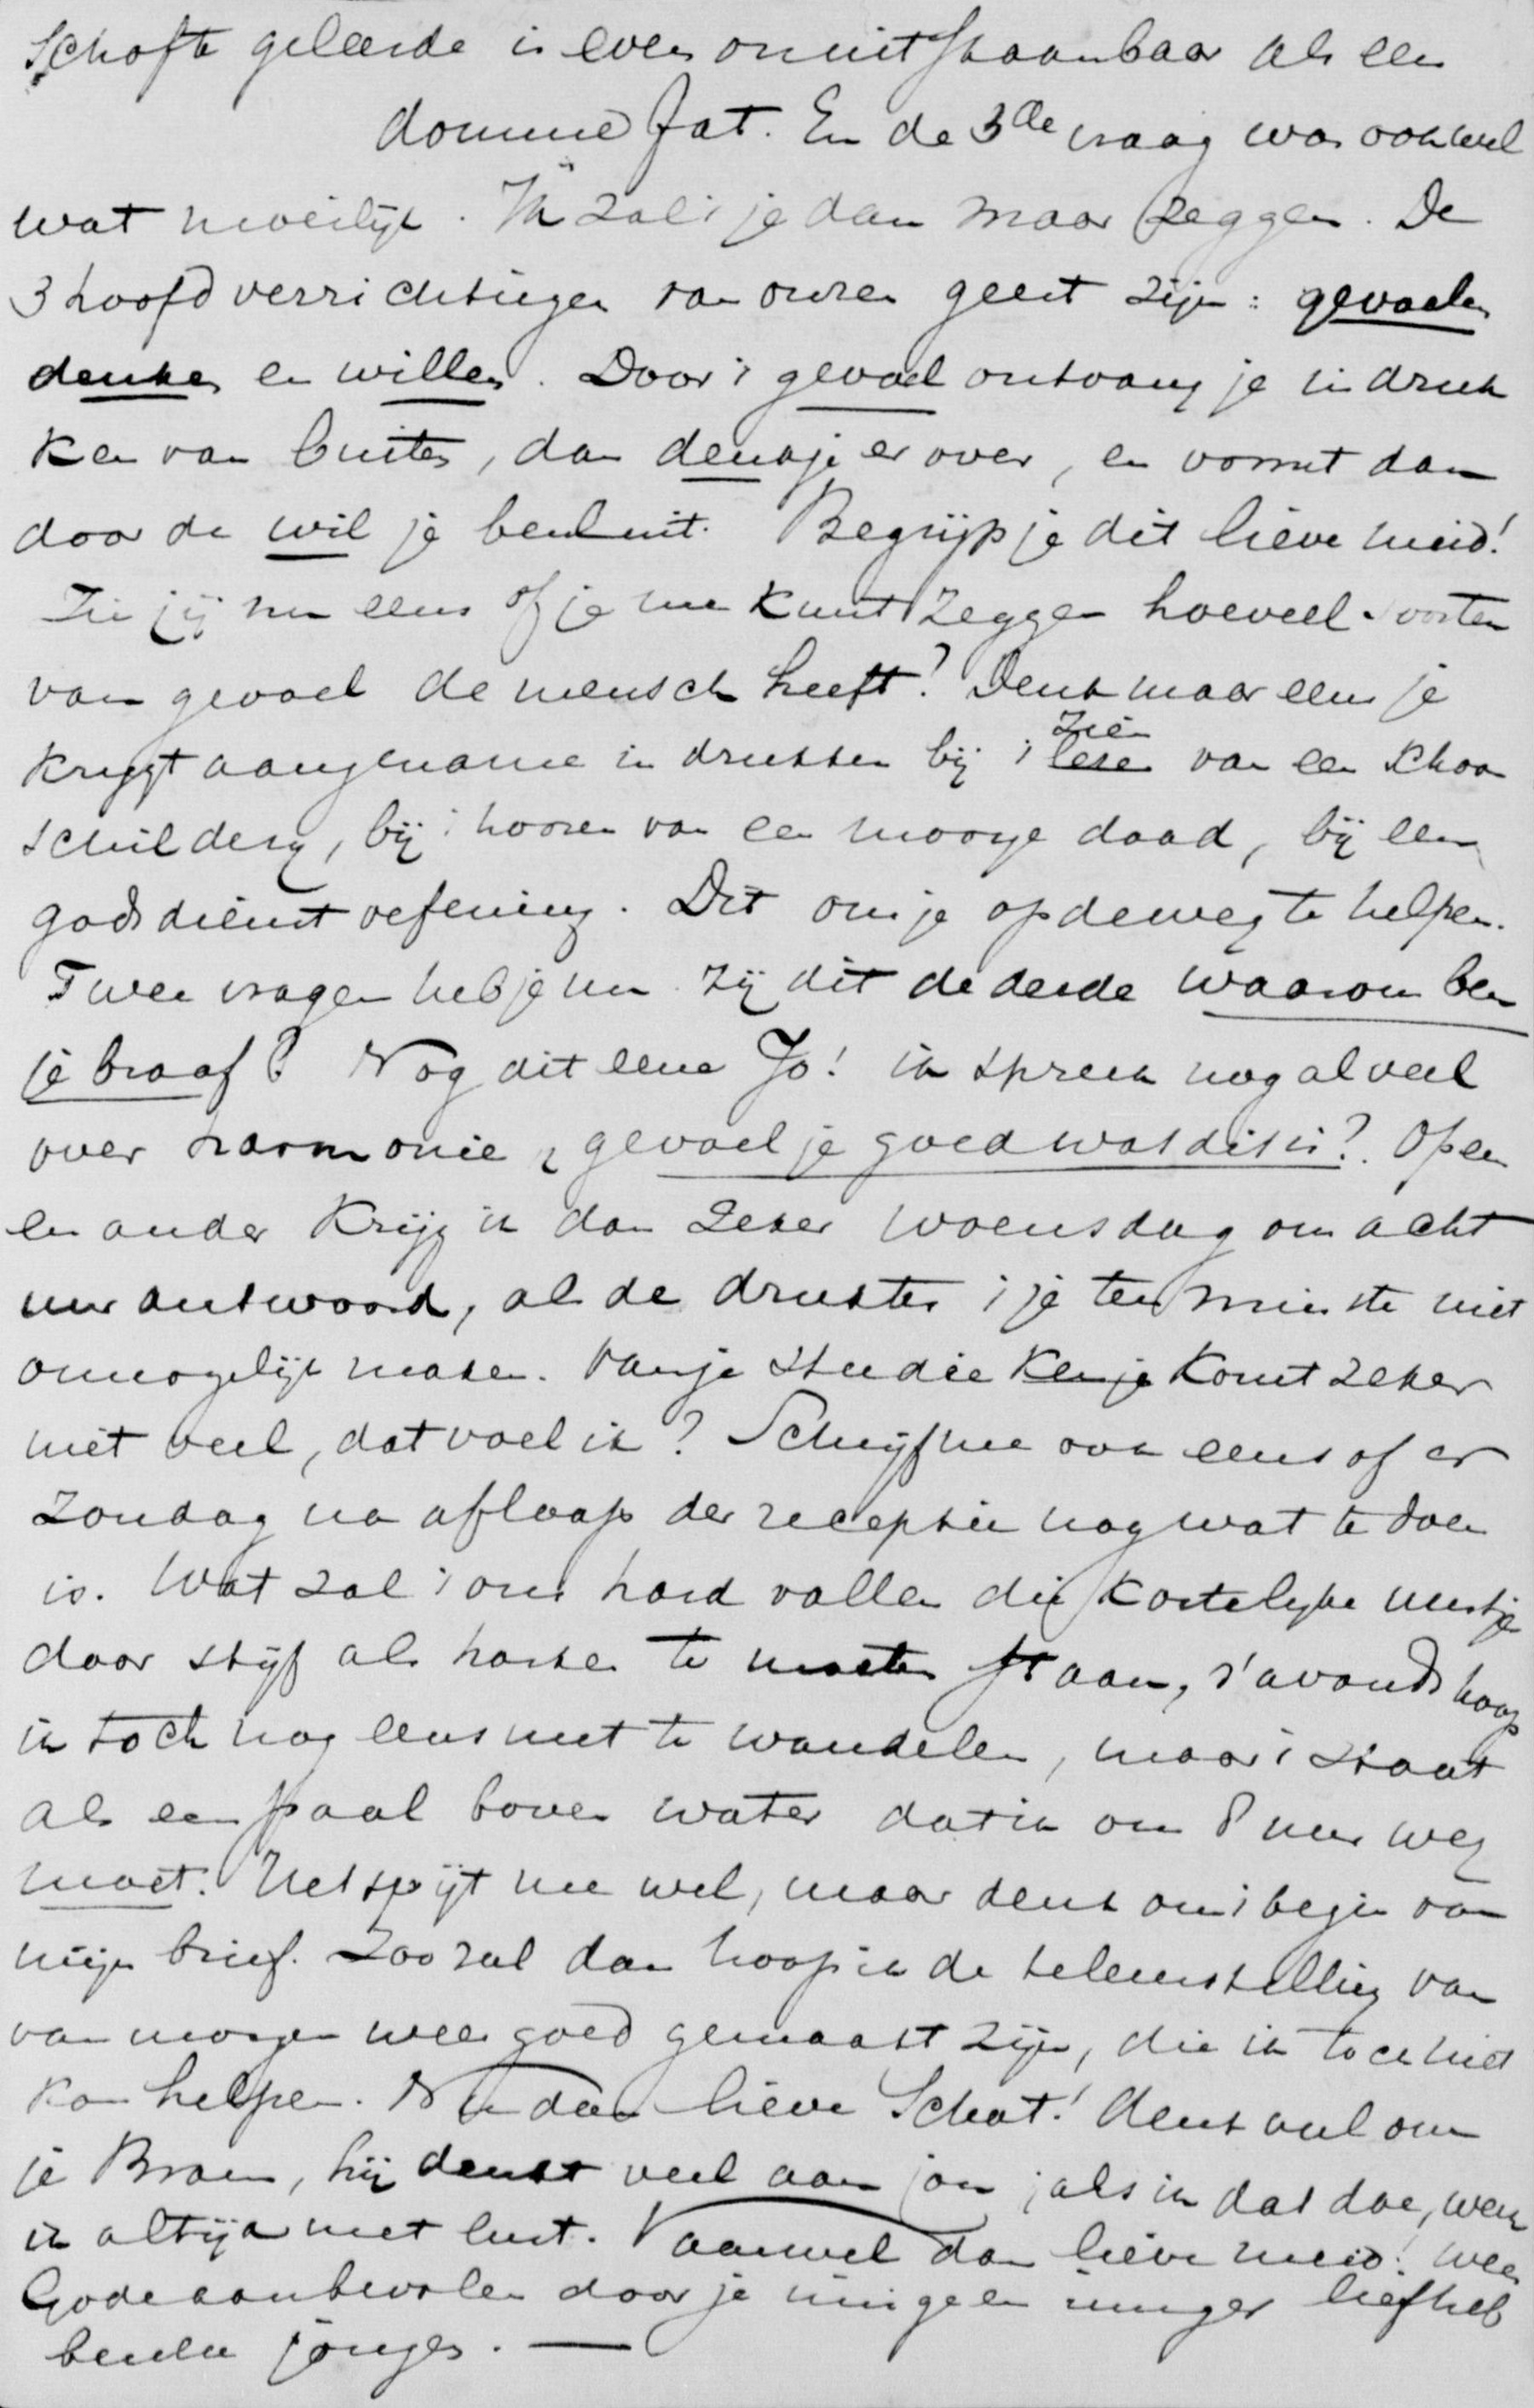 schofte geleerde is even onuitstaanbaar als een
domme fat. En de 3de vraag was ook wel
wat moeilijk. Ik zal 't je dan maar zeggen. De
3 hoofdverrichtingen van onzen geest zijn: gevoelen
denken en willen. Door 't gevoel ontvang je indruk
ken van buiten, dan denk je er over, en vormt dan
door de wil je besluit. Begrijp je dit lieve meid!
Zie jij nu eens of je me kunt zeggen hoeveel soorten
van gevoel de mensch heeft? Denk maar eens je
krijgt aangename indrukken bij 't lezen zien van een schoon
schilderij, bij 't hooren van een mooye daad, bij een
godsdienstoefening. Dit om je op de weg te helpen.
Twee vragen heb je nu. Zij dit de derde waarom ben
je braaf? Nog dit eene Jo! ik spreek nog al veel
over harmonie, gevoel je goed wat dit is? Op een
en ander krijg ik dan zeker woensdag om acht
uur antwoord, als de drukten 't je ten minste niet
onmogelijk maken. Van je studie ken je komt zeker
niet veel, dat voel ik? Schrijf me ook eens of er
Zondag na afloop der receptie nog wat te doen
is. Wat zal 't ons hard vallen die kostelyke uurtjes
door stijf als harken te moeten staan, s'avonds hoop
ik toch nog eens met te wandelen, maar 't staat
als een paal boven water dat ik om 8 uur weg
moet. Het spijt me wel, maar denk om 't begin van
mijn brief. Zoo zal dan hoop ik de teleurstelling van
van morgen weer goed gemaakt zijn, die ik toch niet
kon helpen. Nu dan lieve Schat! denk veel om
je Bram, hij denkt veel aan jou, als ik dat doe, werk
ik altijd met lust. Vaarwel dan lieve meid! wees
Gode aanbevolen door je innig en inniger liefheb
bende jongen. —